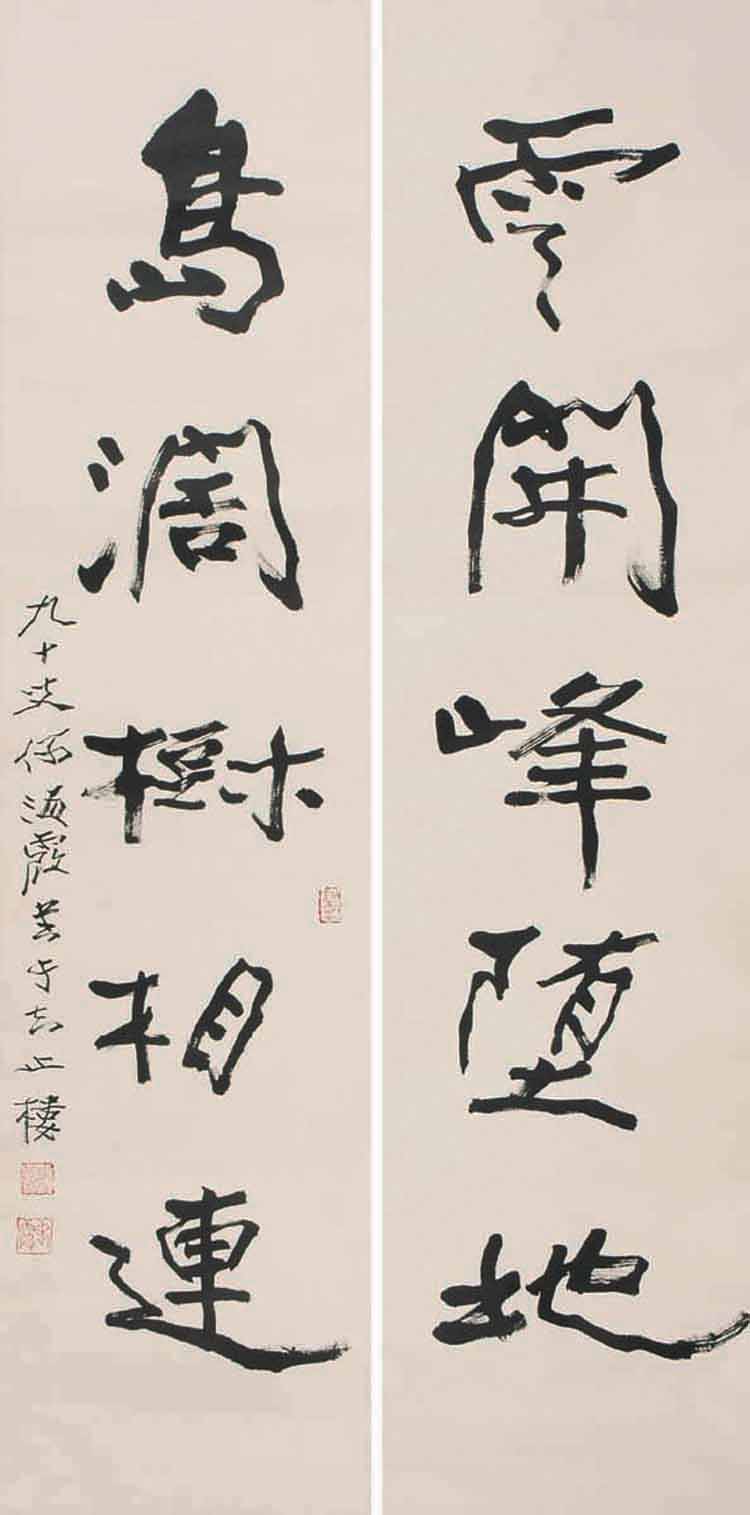 雲開峰墮地
島濶樹相連
九十叟何海霞書于止樓